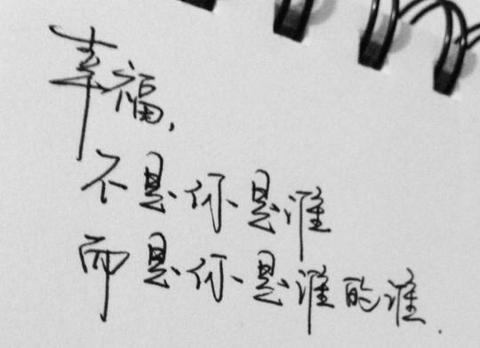 幸福,
不是你是谁
而是你是谁的谁.